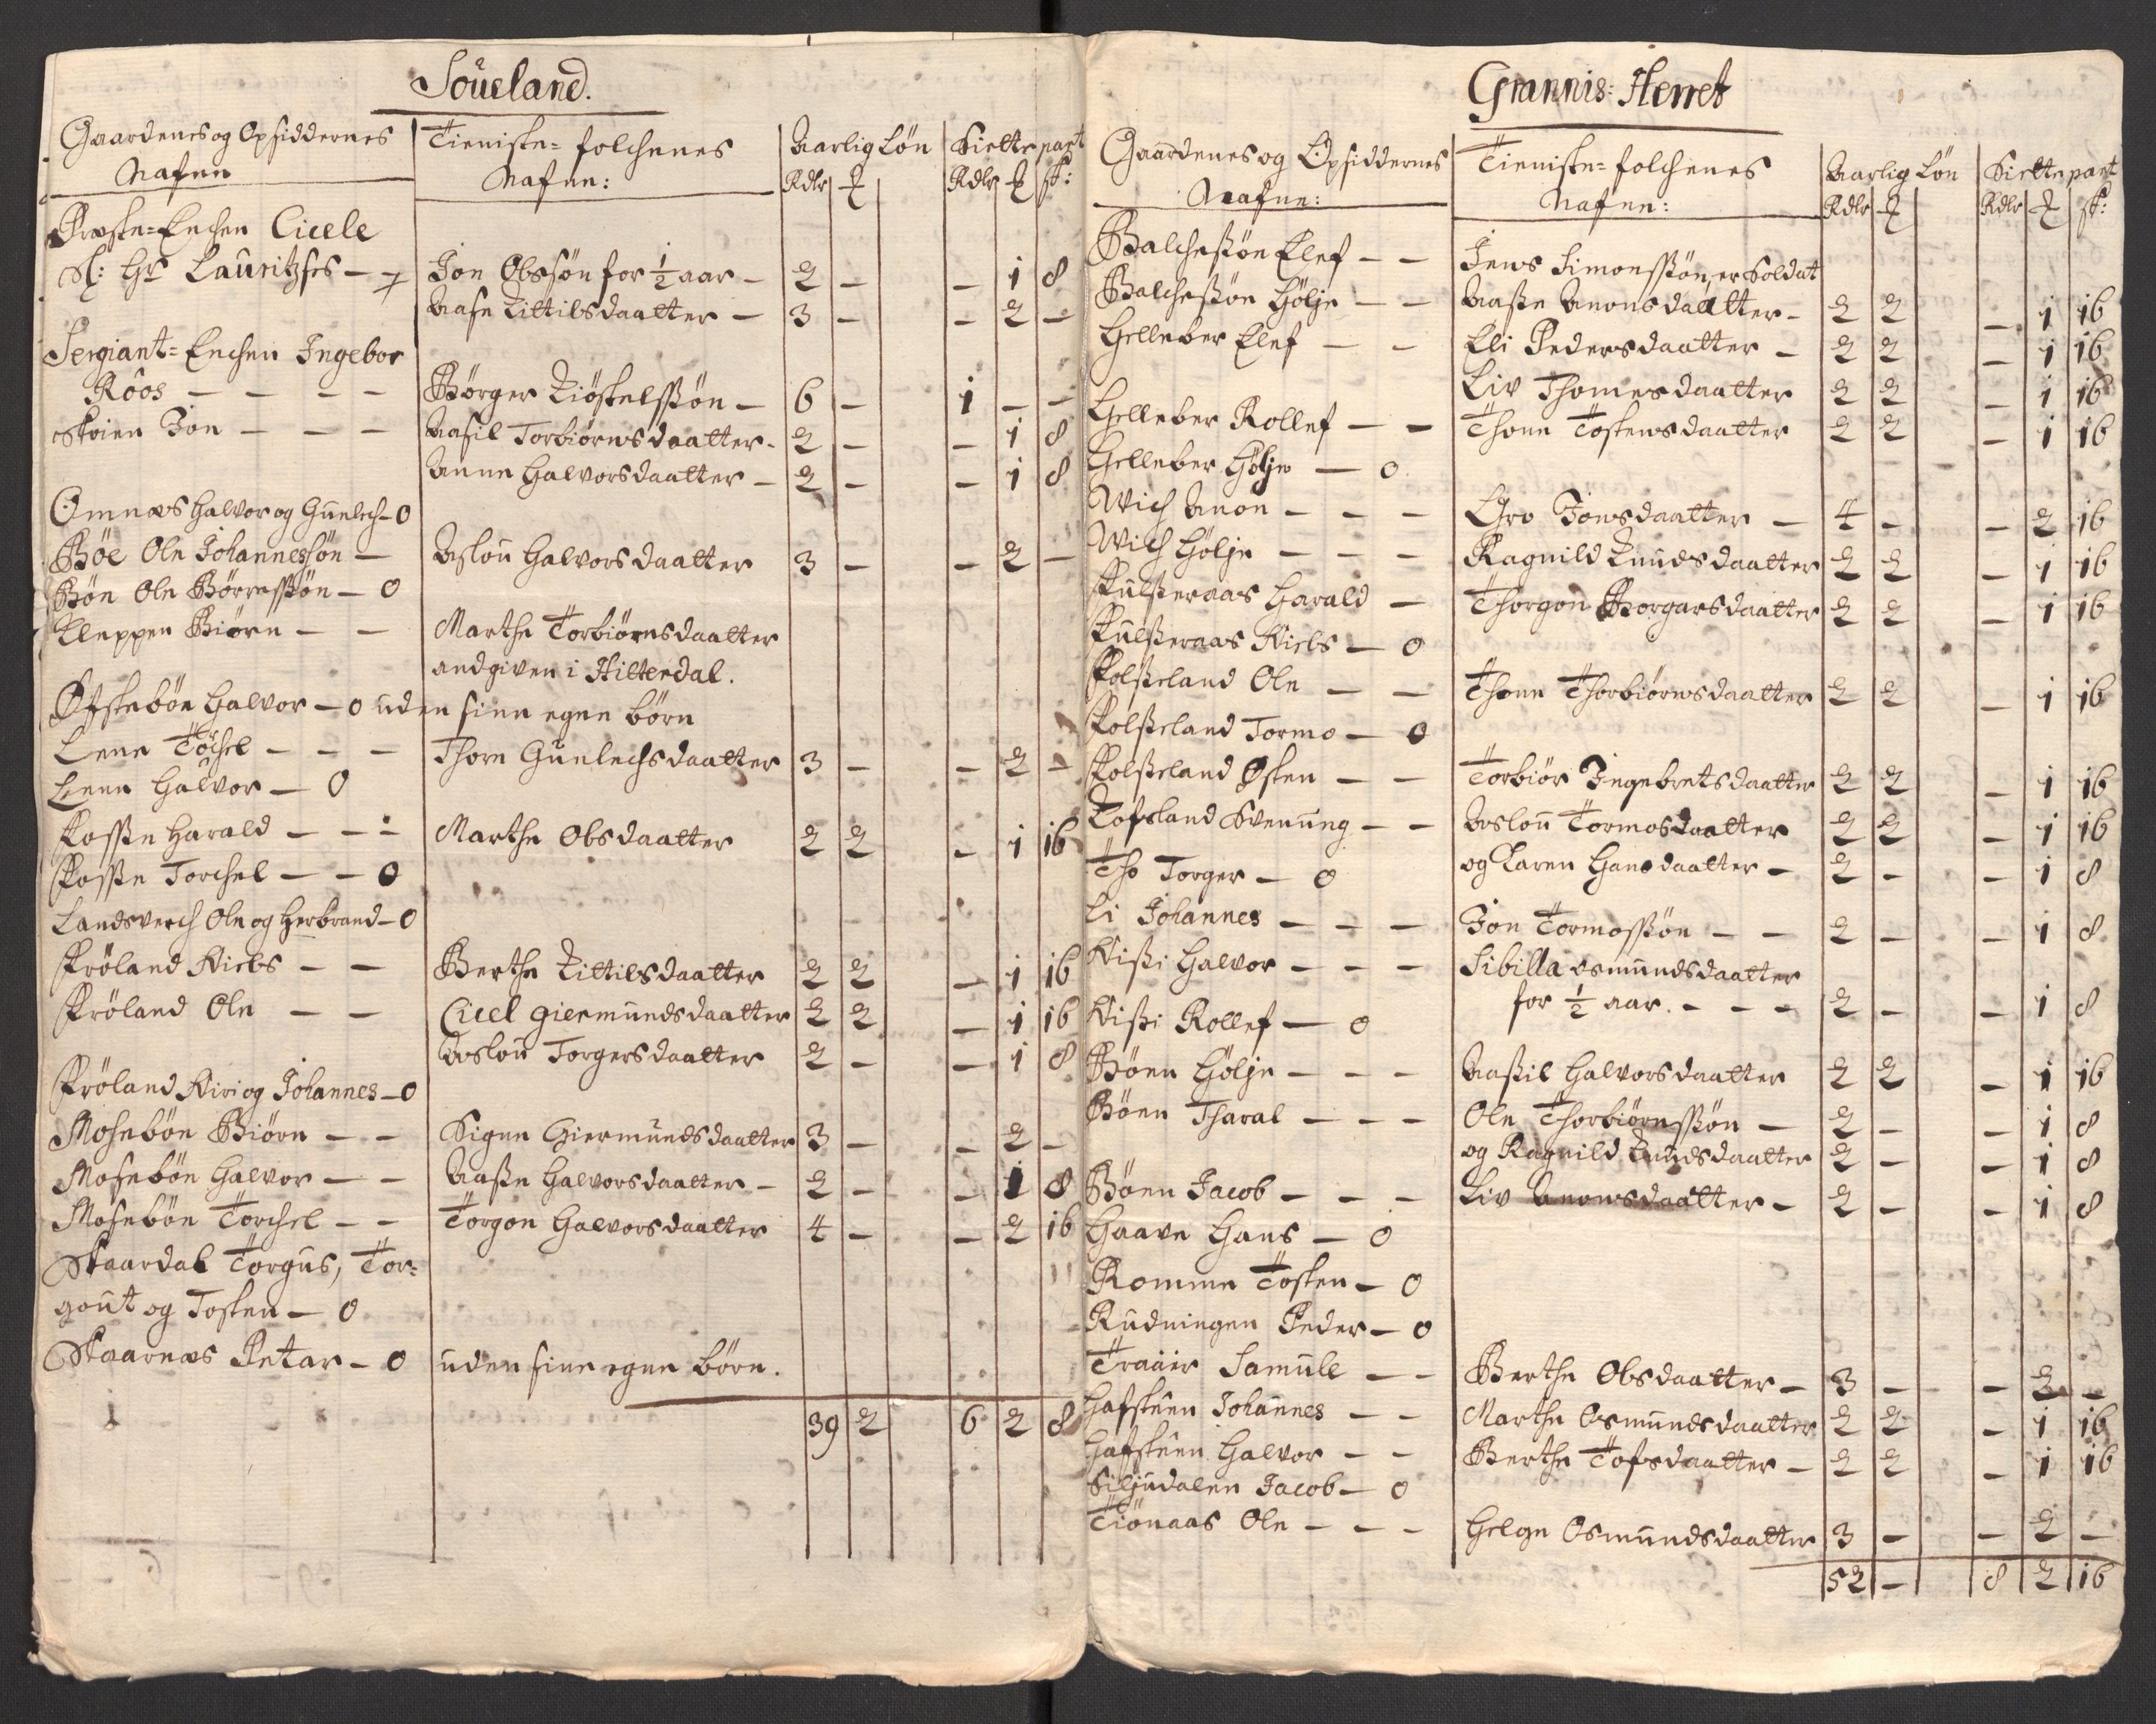 Soüeland.
Gaardenes og Opsiddernes Nafne | Tieniste-folchenes Nafne: | Aarlig Løn Rdlr | Siette part Rdlr ß:
Præste-Enchen Cicele
Sl: Hr Lauritzses — Jon Olssøn for ½ aar — 2 — — 1 8
Aase Kittilsdaatter — 3 — — 2 —
Sergiant-Enchen Ingebor
Roos — — — — Børger Kiøstelssøn — 6 — 1 — —
Skoien Jon — — — Aasil Torbiørnsdaatter — 2 — — 1 8
Anne Halvorsdaatter — 2 — — 1 8
Omnæs Halvor og Gunlech — 0
Bøe Ole Johannessøn — Aslou Halvorsdaatter 3 — — 2 —
Bøe Ole Børressøn — 0
Kleppen Biørn — — Marthe Torbiørnsdaatter
andgiven i Hitterdal.
Øfstebøe Halvor — 0 uden sine egne børn
Lene Torchel — — — Thore Gunlechsdaatter 3 — — 2 —
Lene Halvor — 0
Fosse Harald — — — Marthe Olsdaatter 2 2 — 1 16
Fosse Torchel — — 0
Landsverch Ole og Herbrand — 0
Frøland Niels — — Berthe Kittilsdaatter 2 2 — 1 16
Frøland Ole — — Cicel Giermundsdaatter 2 2 — 1 16
Aslou Torgersdaatter 2 — — 1 8
Frøland Kiri og Johannes — 0
Mosebøe Biørn — — Signe Giermundsdaatter 3 — — 2 —
Mosebøe Halvor — — Aasse Halvorsdaatter — 2 — — 1 8
Mosebøe Torchel — — Torgon Halvorsdaatter 4 — — 2 16
Skaardal Torgus, Tor-
gout og Tosten — 0
Skaarnæs Petar — 0 uden sine egne børn.
39 2 6 2 8
Grannis-Herret
Gaardenes og Opsiddernes Nafne: | Tieniste-folchenes Nafne: | Aarlig Løn Rdlr | Siette part Rdlr ß:
Balchessøn Elef — — Jens Simonssøn, er Soldat
Balchessøn Hølje — — Aasse Anonsdaatter — 2 2 — 1 16
Helleber Elef — — Eli Pedersdaatter — 2 2 — 1 16
Liv Thomesdaatter 2 2 — 1 16
Helleber Rollef — — Thone Tostensdaatter 2 2 — 1 16
Helleber Hølje — 0
Wich Anon — — — Gro Jonsdaatter — 4 — — 2 16
Wich Hølje — — — Ragnild Knudsdaatter 2 2 — 1 16
Fulseraas Harald — Thorgon Borgarsdaatter 2 2 — 1 16
Fulseraas Niels — 0
Folseland Ole — — Thone Thorbiørnsdaatter 2 2 — 1 16
Folseland Tormo — 0
Folseland Østen — — Torbiør Ingebretsdaatter 2 2 — 1 16
Tofsland Svenung — — Aslou Tormosdaatter 2 2 — 1 16
Tho Torger — 0 og Karen Hansdaatter — 2 — — 1 8
Li Johannes — — — Jon Tormossøn — — 2 — — 1 8
Nissi Halvor — — — Sibilla Osmundsdaatter
for ½ aar. — — — 2 — — 1 8
Nissi Rollef — 0
Bøen Hølje — — — Aassil Halvorsdaatter 2 2 — 1 16
Bøen Tharal — — — Ole Thorbiørnssøn — 2 — — 1 8
og Ragnild Knudsdaatter 2 — — 1 8
Bøen Jacob — — — Liv Anonsdaatter — 2 — — 1 8
Haave Hans — 0
Romme Tosten — 0
Rudningen Peder — 0
Traaer Samule — — Berthe Olsdaatter — 3 — — 2 —
Hafsteen Johannes — — Marthe Osmundsdaatter 2 2 — 1 16
Hafsteen Halvor — — Berthe Tofsdaatter — 2 2 — 1 16
Siljudalen Jacob — 0
Tiønaas Ole — — — Helge Osmundsdaatter 3 — — 2 —
52 — 8 2 16